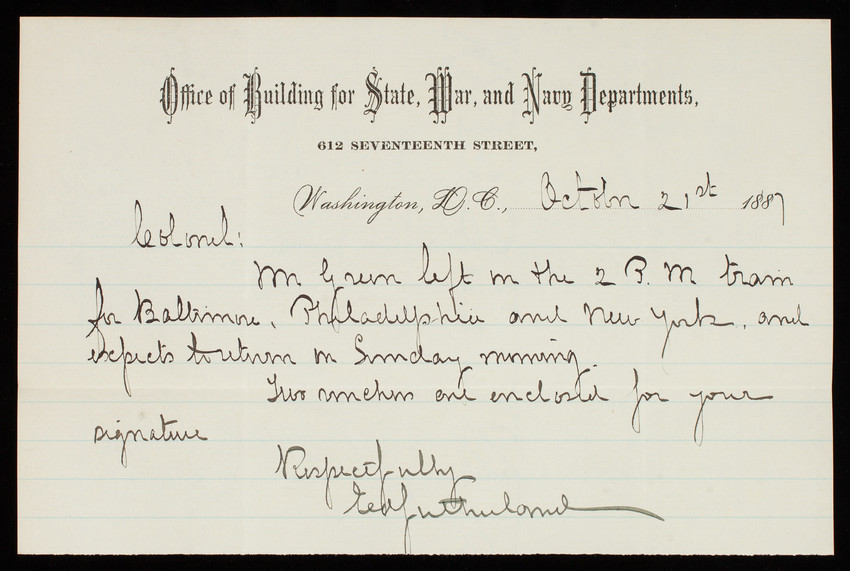 Office of Building for State, War, and Navy Departments,
612 SEVENTEENTH STREET,
Washington, D.C., October 21st 1887
Colonel:
Mr Green left on the 2 P. M train
for Baltimore, Philadelphia and New York, and
expects to return on Sunday morning.
Two vouchers are enclosed for your
signature
Respectfully